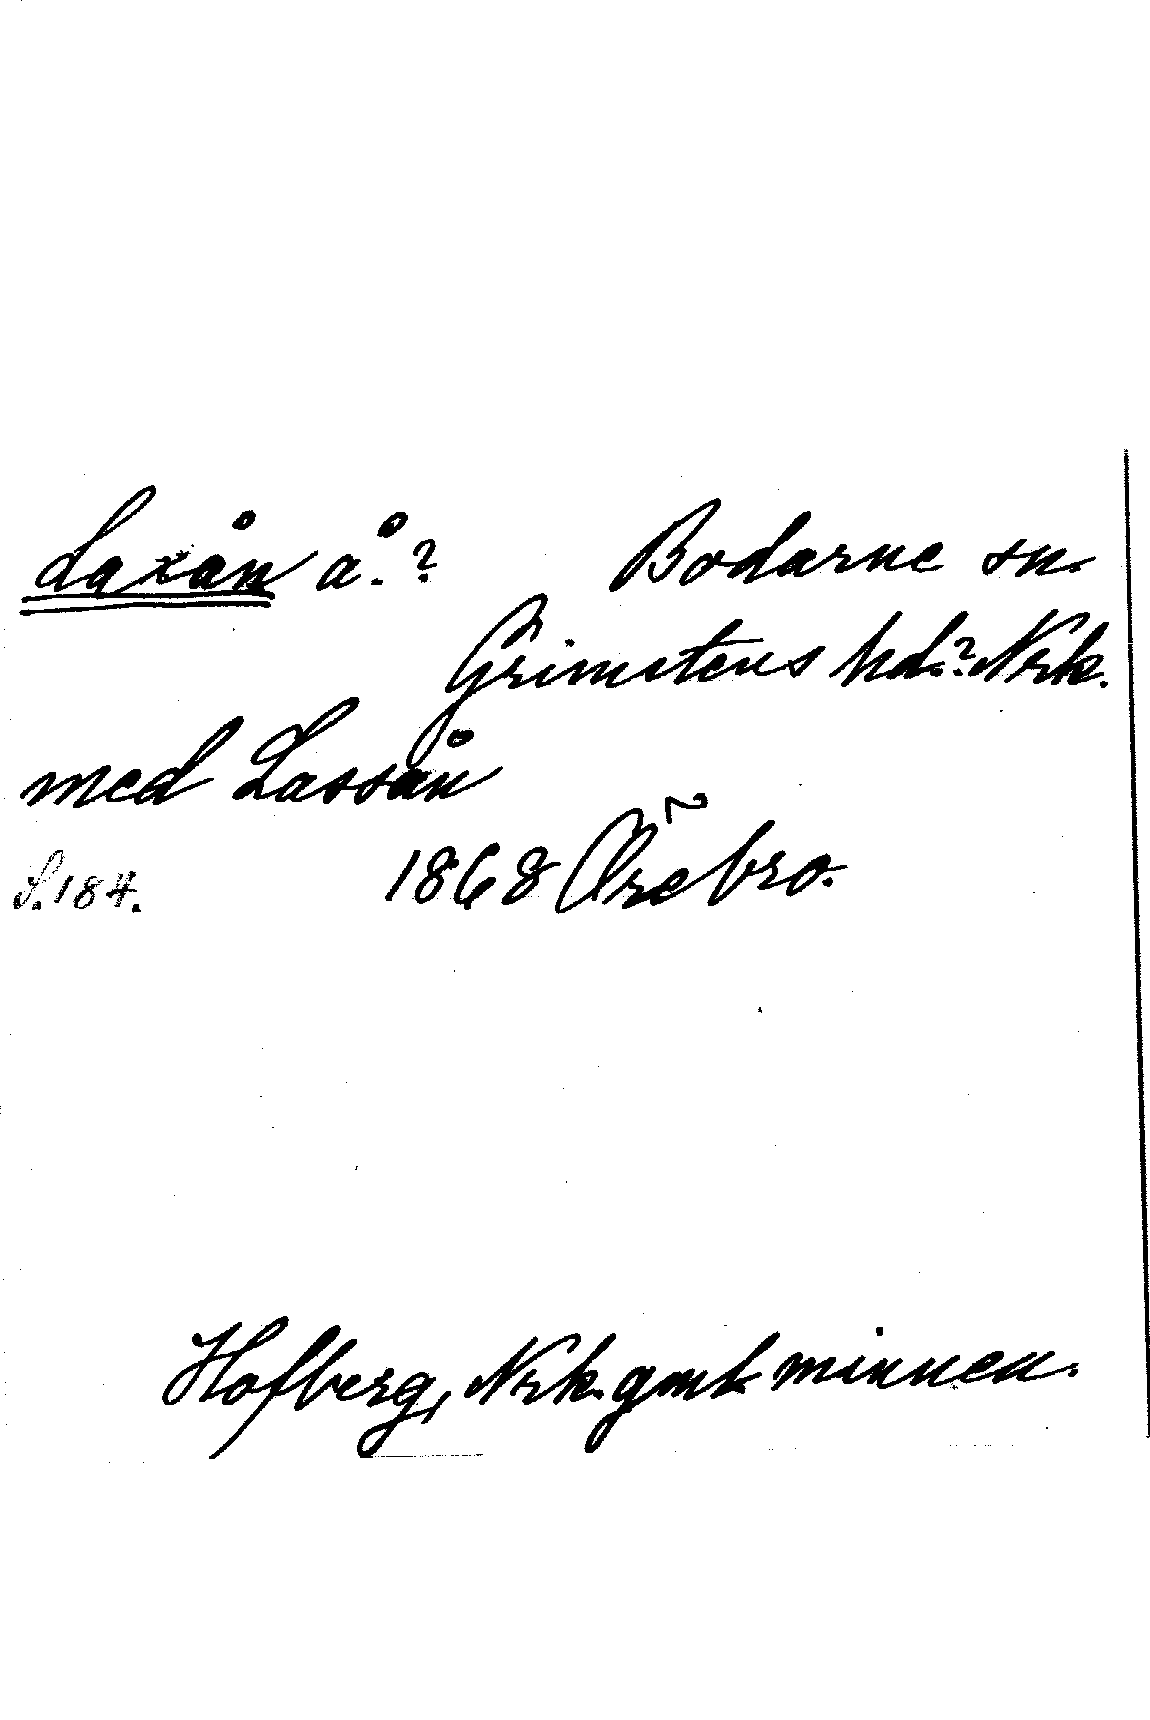 Laxån å.? Bodarne sn.
Grimstens hd.? Nrk.
med Lassån
S.184. 1868 Örebro.
Hofberg, Nrk. gml. minnen.